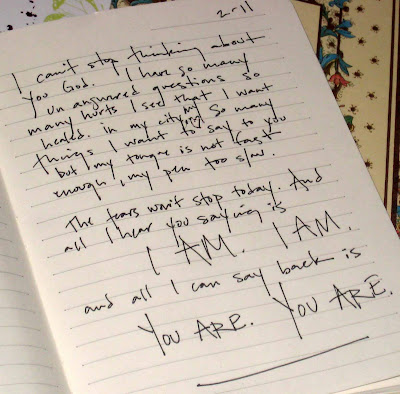 2-11
I can't stop thinking about
you God. I have so many
unanswered questions so
many hurts I see that I want
healed. in my city. So many
things I want to say to you
but my tongue is not fast
enough, my pen too slow.
The tears won't stop today. And
all I hear you saying is
I AM. I AM.
and all I can say back is
YOU ARE. YOU ARE.